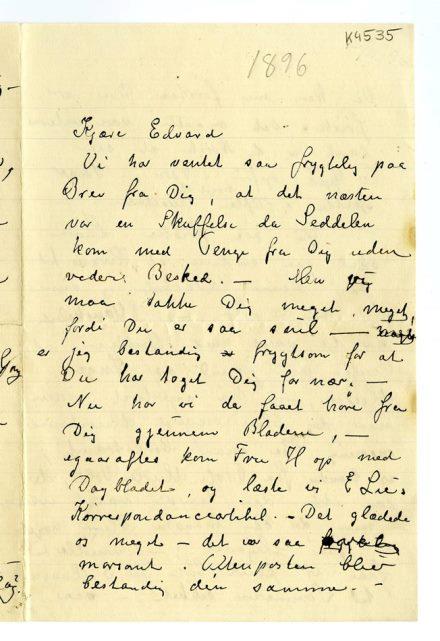 K4535
1896
Kjære Edvard
Vi har ventet saa frygtelig paa
Brev fra Dig, at det næsten
var en Skuffelse da Seddelen
kom med Penge fra Dig uden
videre Besked. — Men jeg
maa takke Dig meget, meget,
fordi Du er saa snil —
er jeg bestandig frygtsom for at
Du har taget Dig for nær. —
Nu har vi da faaet høre fra
Dig gjennem Bladene, —
igaaraftes kom Fru H op med
Dagbladet, og læste vi E Lies
Korrespondanceartikel. — Det glædede
os meget — det var saa
morsomt. Aftenposten blier
bestandig den samme. —